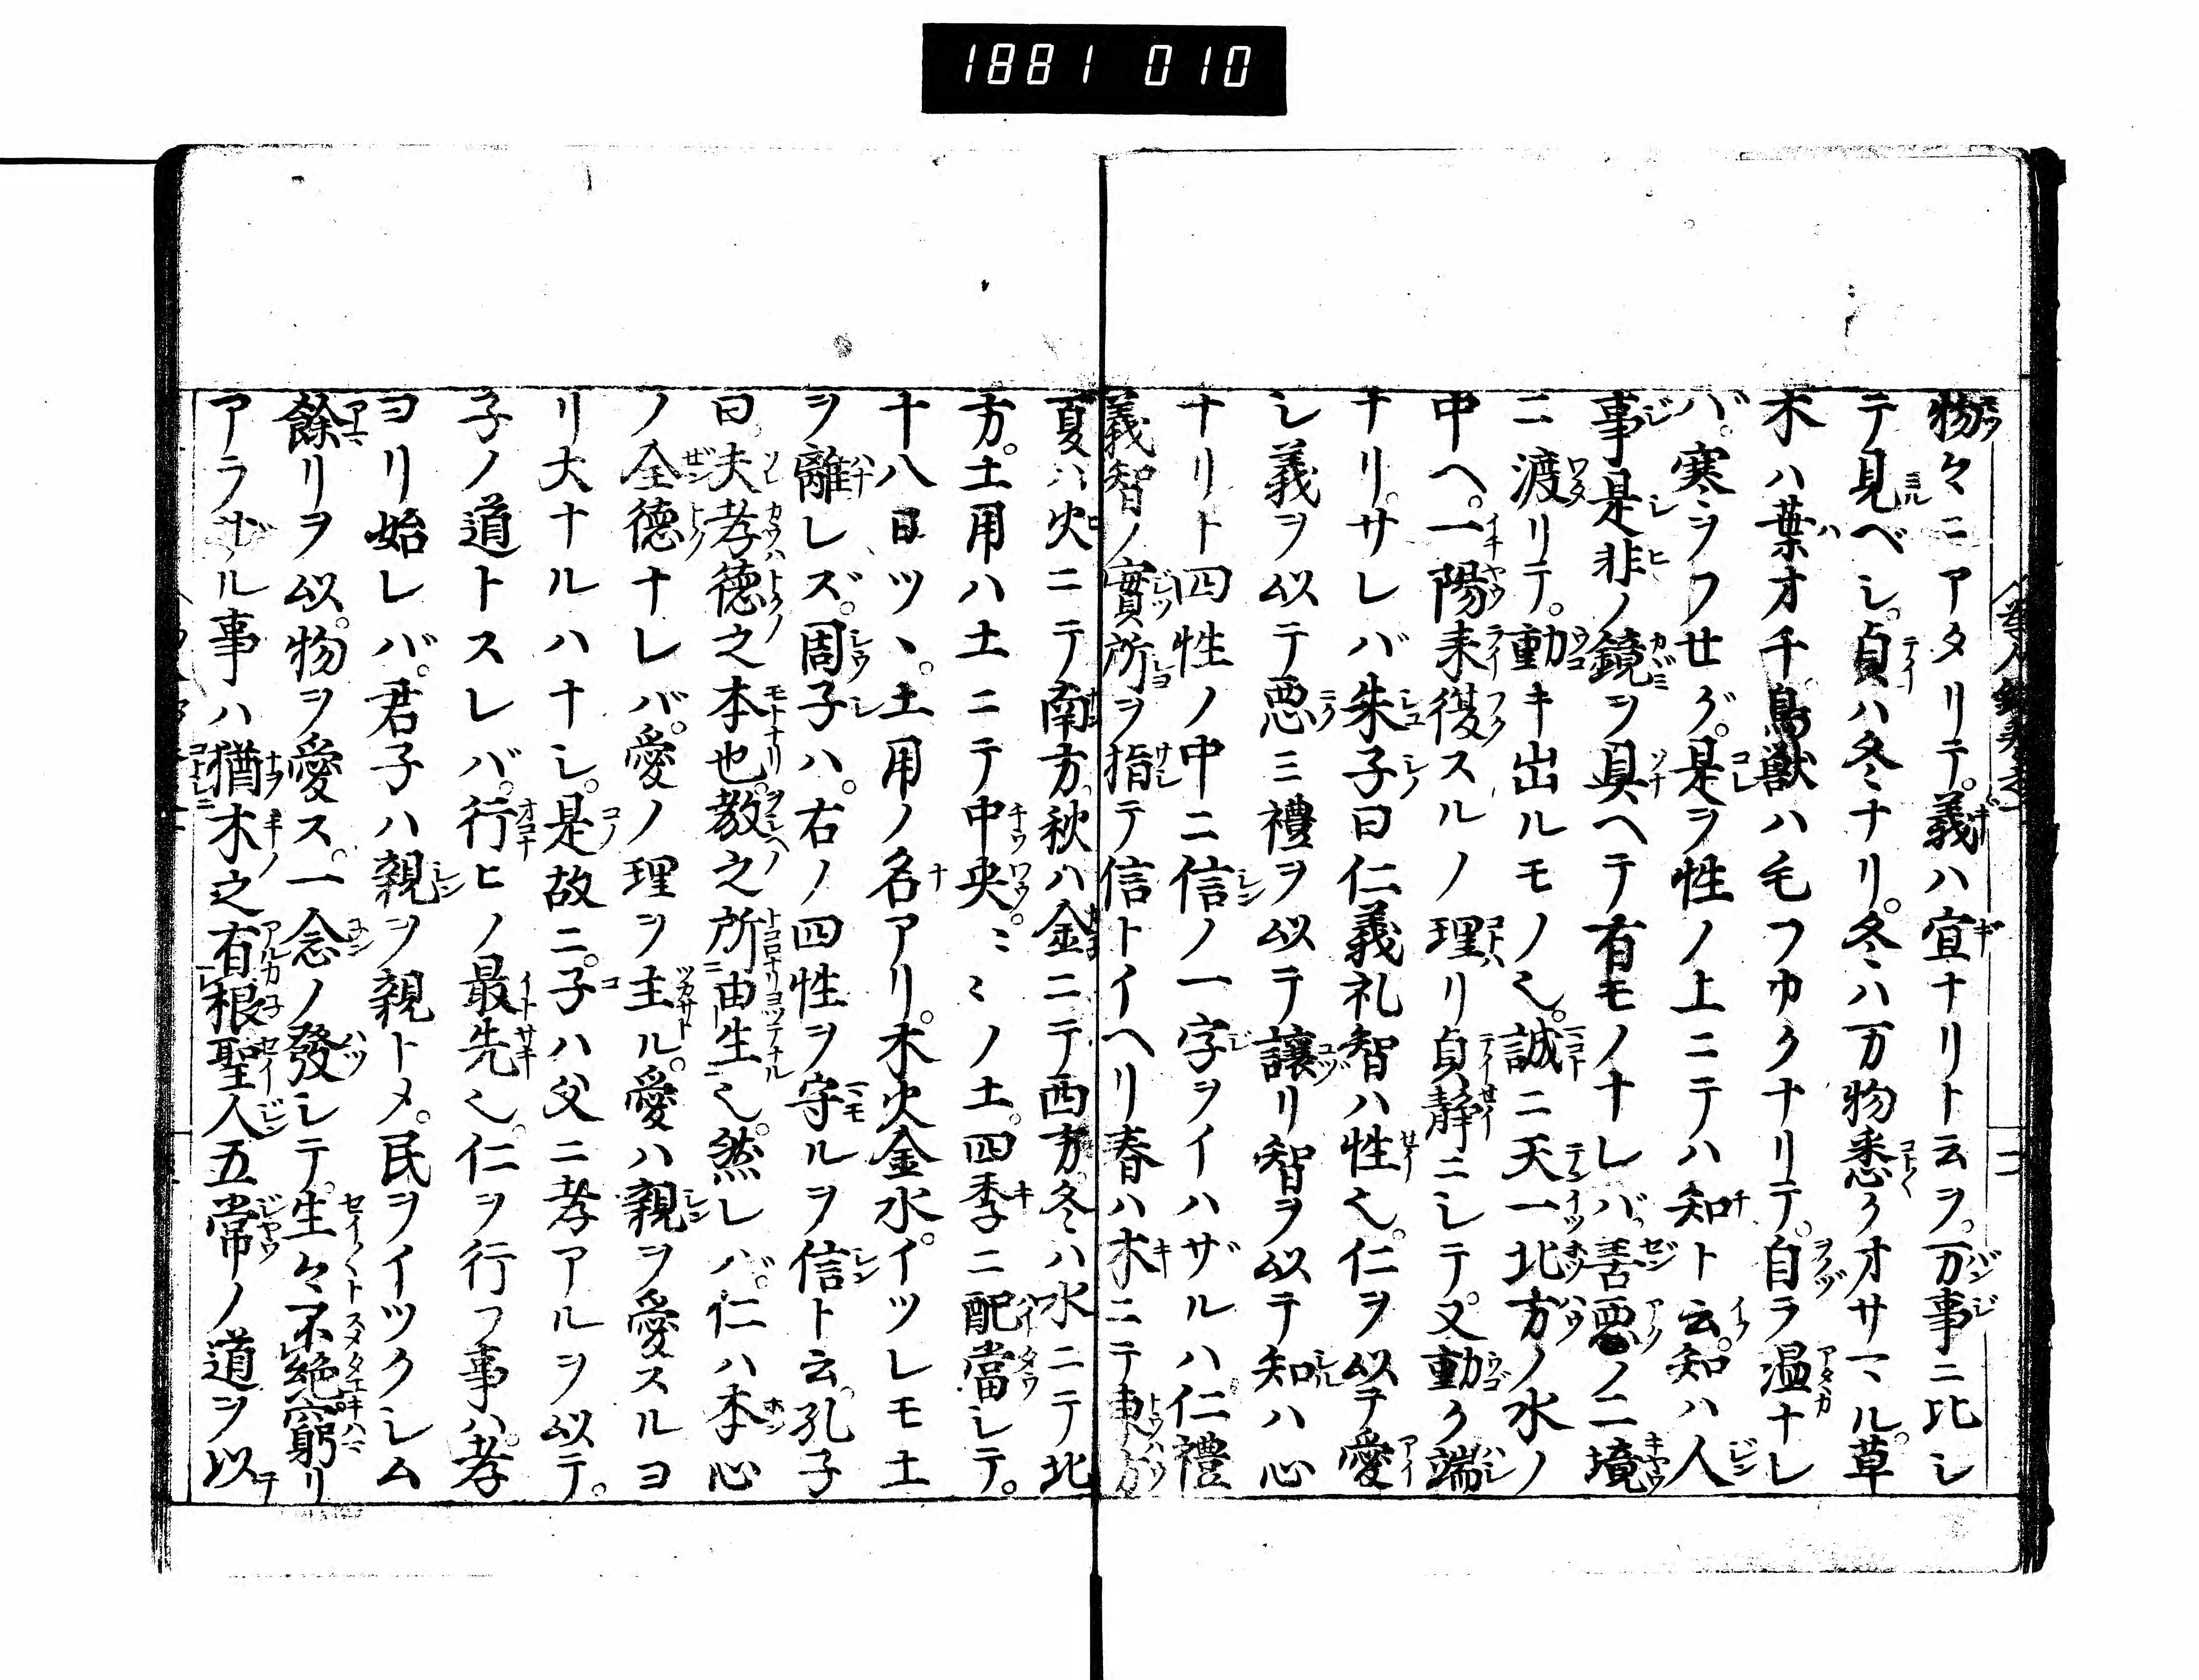 1881 010
物々ニアタリテ。義ハ宜ナリト云ヲ。万事ニ比シ
テ見ベシ。貞ハ冬ナリ。冬ハ万物悉クオサマル。草
木ハ葉オチ鳥獣ハ毛フカクナリテ。自ラ温ナレ
バ。寒ヲフセグ。是ヲ性ノ上ニテハ知ト云。知ハ人
事是非ノ鏡ヲ具ヘテ有モノナレバ善悪ノ二境
ニ渡リテ。動キ出ルモノ也。誠ニ天一北方ノ水ノ
中ヘ。一陽来復スルノ理リ貞静ニシテ。又動ク端
ナリ。サレバ朱子曰仁義礼智ハ性也。仁ヲ以テ愛
シ義ヲ以テ悪ミ禮ヲ以テ讓リ智ヲ以テ知ハ心
ナリト四性ノ中ニ信ノ一字ヲイハザルハ仁禮
義智ノ實所ヲ指テ信トイヘリ春ハ木ニテ東方
夏ハ火ニテ南方秋ハ金ニテ西方冬ハ水ニテ北
方。土用ハ土ニテ中央。ミミノ土。四季ニ配當シテ。
十八日ツヽ。土用ノ名アリ。木火金水。イツレモ土
ヲ離レズ。周子ハ。右ノ四性ヲ守ルヲ信ト云。孔子
曰。夫孝徳之本也。教之所由生也。然レバ。仁ハ本心
ノ全徳ナレバ。愛ノ理ヲ主ル。愛ハ親ヲ愛スルヨ
リ大ナルハナシ。是故ニ。子ハ父ニ孝アルヲ以テ。
子ノ道トスレバ。行ヒノ最先也。仁ヲ行フ事ハ。孝
ヨリ始レバ。君子ハ親ヲ親トメ。民ヲイツクシム
餘リヲ以。物ヲ愛ス。一念ノ發シテ。生々不絶窮リ
アラザル事ハ猶木之有根聖人五常ノ道ヲ以テ